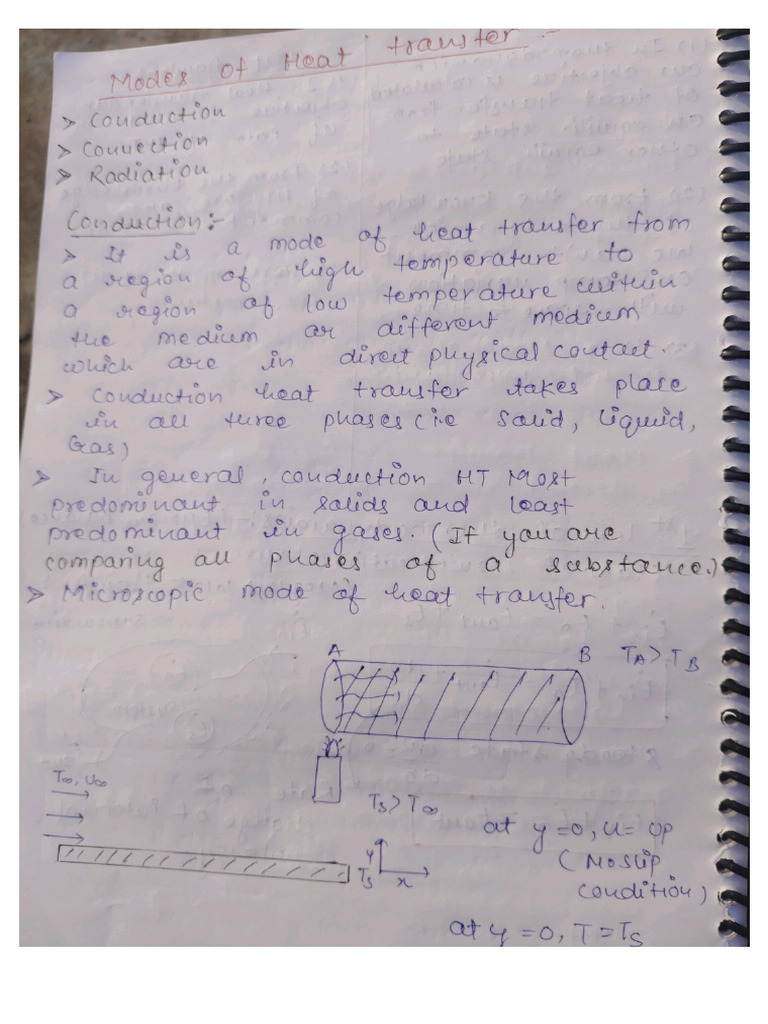 Modes of Heat transfer :-
> Conduction
> Convection
> Radiation
Conduction:-
> It is a mode of heat transfer from
a region of high temperature to
a region of low temperature within
the medium or different medium
which are in direct physical contact.
> Conduction heat transfer takes place
in all three phases (i.e Solid, Liquid,
Gas)
> In general, conduction HT Most
predominant in solids and least
predominant in gases. (If you are
comparing all phases of a substance.)
> Microscopic mode of heat transfer.
A B TA > TB
T∞, U∞
Ts > T∞
y
Ts x
at y=0, u= up
(No slip
condition)
at y=0, T=Ts